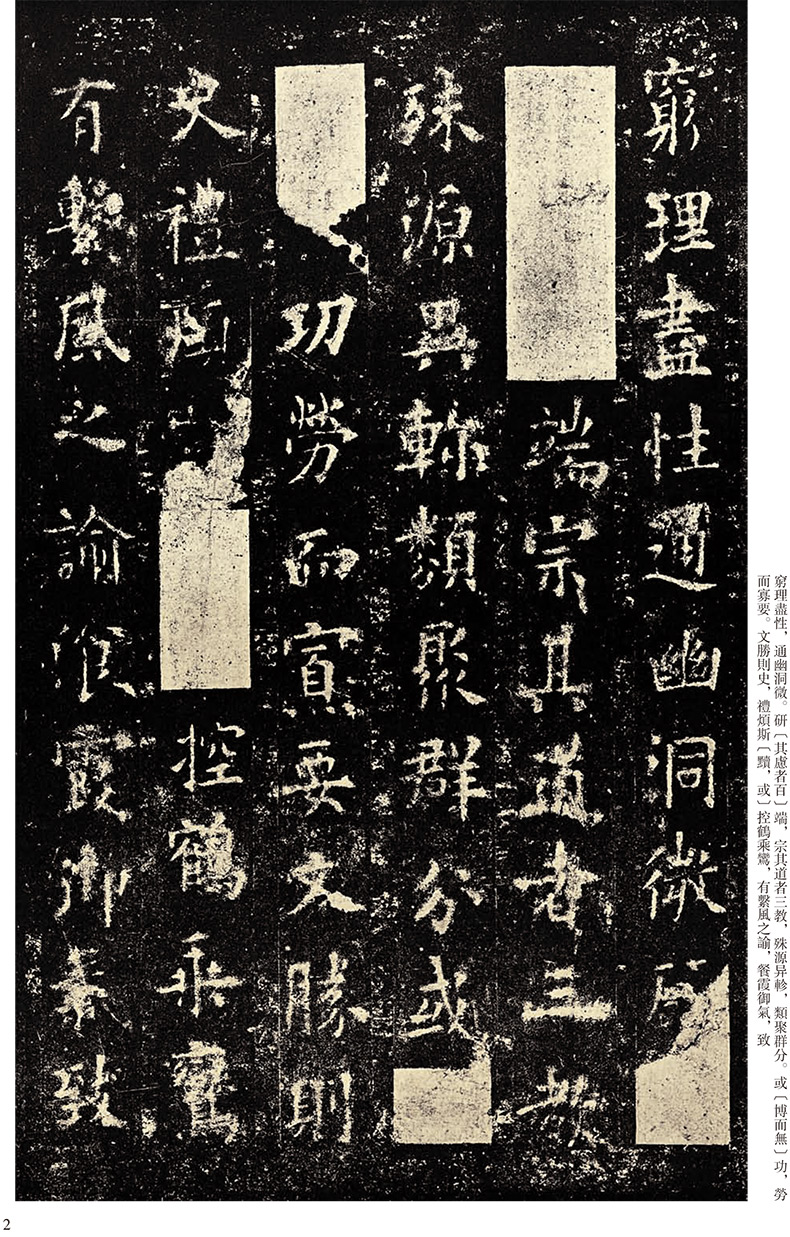 窮理盡性通幽洞微研
端宗其道者三教
殊源異軫類聚群分或
功勞而寡要文勝則
史禮煩控鶴乘鸞
有繫風之諭餐霞御氣致
窮理盡性，通幽洞微。研〔其慮者百〕端，宗其道者三教，殊源异軫，類聚群分。或〔博而無〕功，勞
而寡要。文勝則史，禮煩斯〔黷，或〕控鶴乘鸞，有繫風之諭，餐霞御氣，致
2